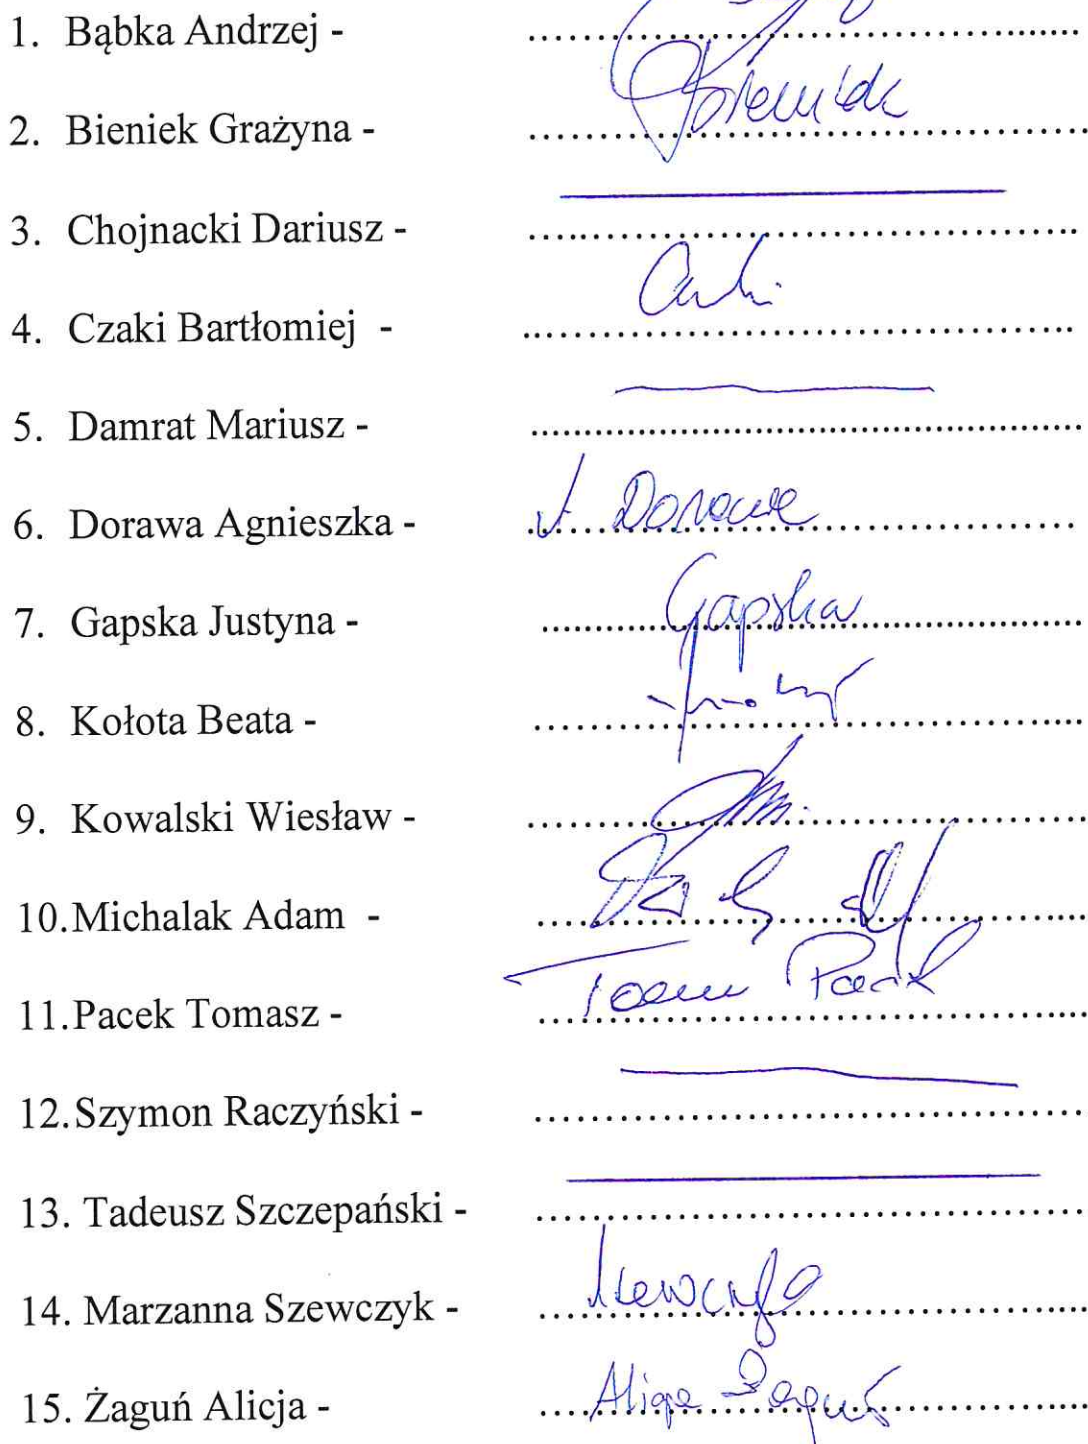 1. Bąbka Andrzej - ..........
2. Bieniek Grażyna - ..........
3. Chojnacki Dariusz - ..........
4. Czaki Bartłomiej - ..........
5. Damrat Mariusz - ..........
6. Dorawa Agnieszka - .......... Dorawa
7. Gapska Justyna - .......... Gapska
8. Kołota Beata - ..........
9. Kowalski Wiesław - ..........
10. Michalak Adam - ..........
11. Pacek Tomasz - .......... Pacek
12. Szymon Raczyński - ..........
13. Tadeusz Szczepański - ..........
14. Marzanna Szewczyk - ..........
15. Żaguń Alicja - .......... Alicja Żaguń